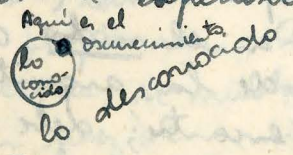 Aquí es el
oscurecimiento
lo
cono-
cido
lo desconocido